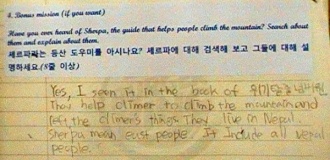 4. Bonus mission (if you want)
Have you ever heard of Sherpa, the guide that helps people climb the mountain? Search about
them and explain about them.
세르파라는 등산 도우미를 아시나요? 세르파에 대해 검색해 보고 그들에 대해 설
명하세요.(8줄 이상)
Yes, I seen it in the book of
They help climer to climb the mountain and
left the climer's things. They live in Nepal.
Sherpa mean east people. It Include all
people.